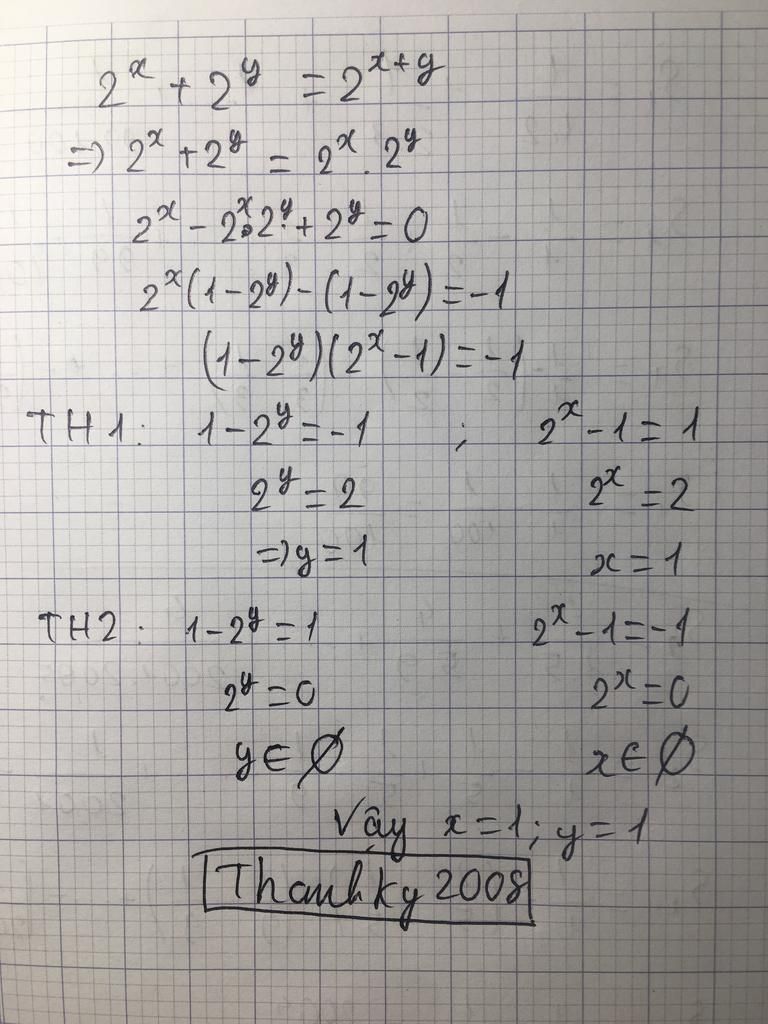 2^x + 2^y = 2^{x+y}
=> 2^x + 2^y = 2^x . 2^y
2^x - 2^x.2^y + 2^y = 0
2^x(1-2^y) - (1-2^y) = -1
(1-2^y)(2^x-1) = -1
TH1: 1-2^y = -1 ; 2^x-1 = 1
2^y = 2 2^x = 2
=> y = 1 x = 1
TH2: 1-2^y = 1 2^x-1 = -1
2^y = 0 2^x = 0
y ∈ ∅ x ∈ ∅
Vậy x = 1; y = 1
Thanhky 2008